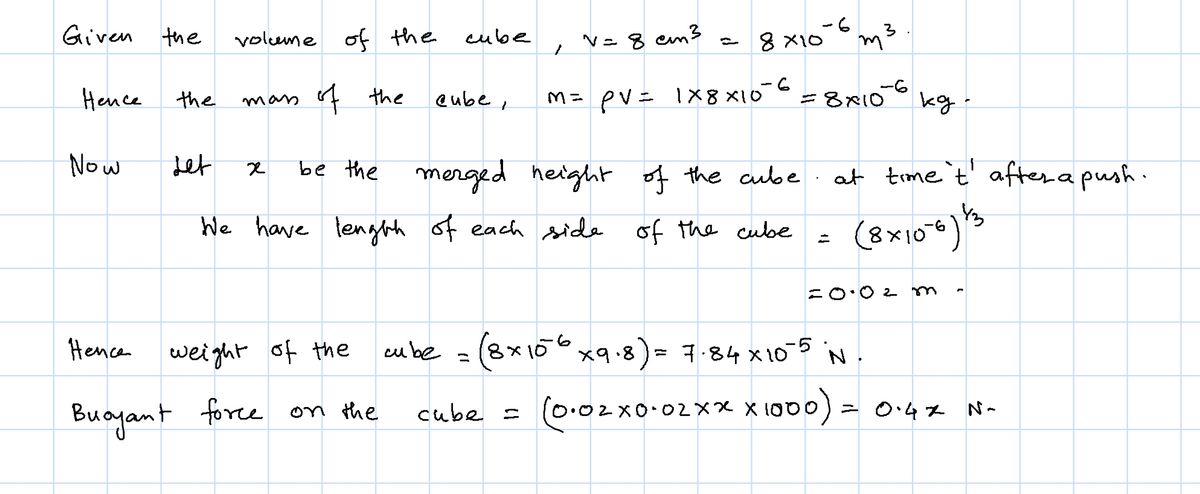 Given the volume of the cube, V = 8 cm³ = 8 × 10⁻⁶ m³.
Hence the mass of the cube, m = ρV = 1 × 8 × 10⁻⁶ = 8 × 10⁻⁶ kg.
Now Let x be the merged height of the cube. at time 't' after a push.
We have length of each side of the cube = (8 × 10⁻⁶)^(1/3)
= 0.02 m.
Hence weight of the cube = (8 × 10⁻⁶ × 9.8) = 7.84 × 10⁻⁵ N.
Buoyant force on the cube = (0.02 × 0.02 × x × 1000) = 0.4x N.